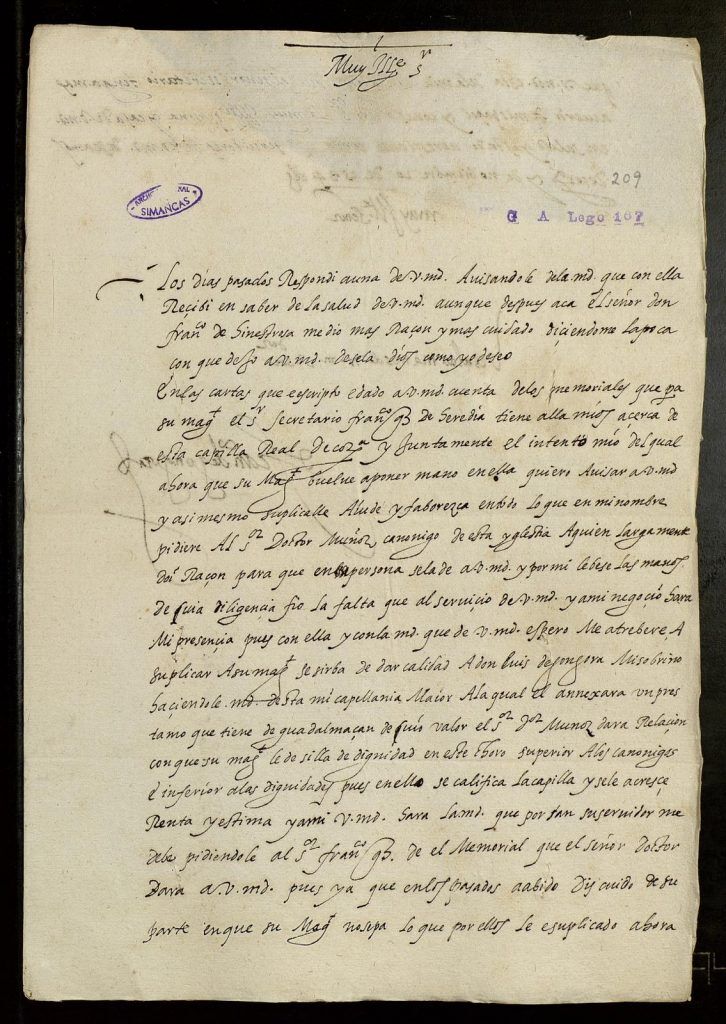 Muy Ille Sr
209
ARCHIVO GENERAL SIMANCAS
G A Lego 167
Los dias pasados Respondi a una de v. md. Avisandole dela md. que con ella
Reçibi en saber de la salud de v. md. aunque despues aca el señor don
franco de hinestrosa me dio mas Raçon y mas cuidado diçiendome la poca
con que dexo a v. md. desela dios como yo deseo
En las cartas que e escripto e dado a v. md. cuenta de los memoriales que pa
su magt el sr secretario franco gz de heredia tiene alla mios acerca de
esta capilla Real de corva y Juntamente el intento mio del qual
ahora que su Magt buelve a poner mano en ella quiero Avisar a v. md
y asi mesmo suplicalle Aiude y faborezca en todo lo que en mi nombre
pidiere Al sor Doctor Muñoz, canonigo de esta yglesia A quien largamente
doi Raçon para que en persona se la de a v. md. y por mi le bese las manos.
de cuia diligençia fio la falta que al servicio de v. md. y a mi negoçio hara
Mi presençia pues con ella y con la md. que de v. md. espero Me atrebere A
suplicar A su magt se sirba de dar calidad A don luis de gongora Mi sobrino
haçiendole md. desta mi capellania Maior A la qual el annexara vn pres
tamo que tiene de guadalmaçan de cuio valor el sor dor Muñoz dara Relaçion
con que su magt le de silla de dignidad en este Choro superior A los canonigos
e inferior a las dignidades pues en ello se califica La capilla y se le acresçe
Renta y estima y a mi v. md. hara La md. que por tan su servidor me
debe pidiendole al sor franco gz. de el Memorial que el señor doctor
Dara a v. md. pues ya que en los pasados a abido Discuido de su
parte en que su Magt no sepa lo que por ellos le e suplicado ahora